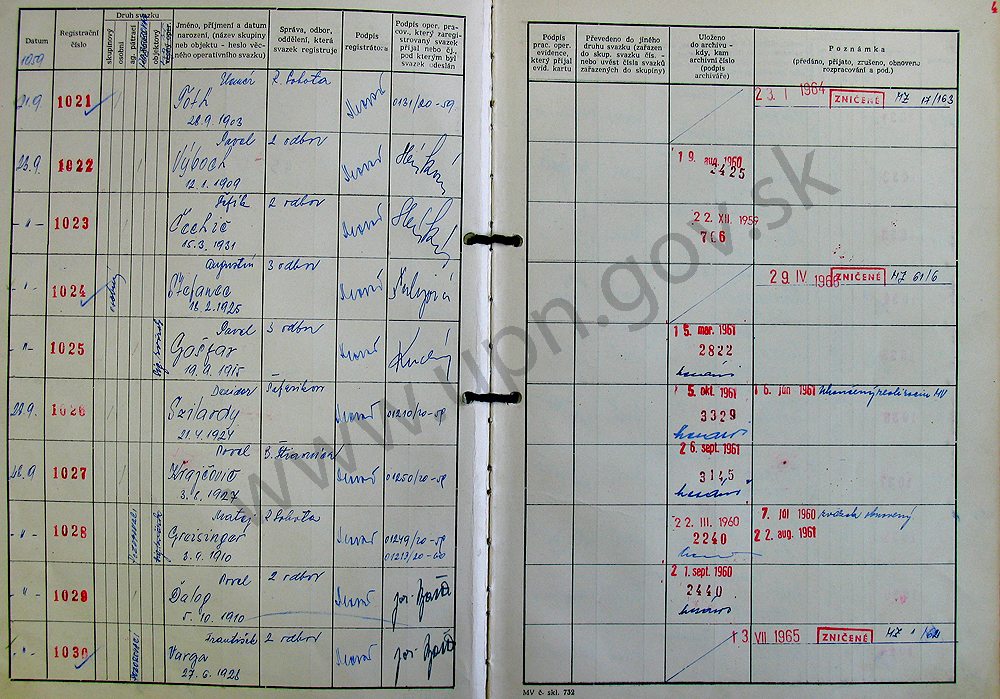 Datum
1959
Registrační číslo
Druh svazku
skupinový
osobní
ag. pátrací
objektový
Jméno, příjmení a datum
narození, (název skupiny
neb objektu - heslo věc-
ného operativního svazku)
Správa, odbor,
oddělení, která
svazek registruje
Podpis
registrátora:
Podpis oper. pra-
cov., který zaregi-
stroval svazek
přijal nebo čj.,
pod kterým byl
svazek odeslán
21.9. 1021 R. Sobota
Tóth 0131/20-59
28.9.1903
23.9. 1022 Pavel 2 odbor
Výboch
12.1.1909
-"- 1023 2 odbor
Čechič
15.3.1931
-"- 1024 Augustín 3 odbor
Štefanec
18.2.1925
-"- 1025 Pavel 3 odbor
Gašpar
19.9.1915
28.9. 1026 Dezider Šafárikovo
Szilardy 01210/20-59
21.4.1924
28.9 1027 Pavel B. Štiavnica
Krajčovič 01250/20-59
3.6.1927
-"- 1028 Matej R. Sobota
Greisinger 01249/20-59
3.9.1910 01213/20-60
-"- 1029 Pavel 2 odbor
Ďalog
5.10.1910
-"- 1030 František 2 odbor
Varga
27.6.1926
4
Podpis
prac. oper.
evidence,
který přijal
evid. kartu
Převedeno do jiného
druhu svazku (zařazen
do skup. svazku čís. -
nebo uvést čísla svazků
zařazených do skupiny)
Uloženo
do archivu -
kdy, kam
archivní číslo
(podpis
archiváře)
Poznámka
(předáno, přijato, zrušeno, obnoveno
rozpracování a pod.)
23. I 1964 ZNIČENÉ MZ 17/163
19. aug. 1960
2425
22. XII. 1959
706
29. IV 1966 ZNIČENÉ MZ 61/6
15. mar. 1961
2822
5. okt. 1961 16. jún 1961
3329
26. sept. 1961
3145
22. III. 1960 7. júl 1960 zväzok obnovený
2240 22. aug. 1961
21. sept. 1960
2440
13 VII. 1965 ZNIČENÉ
MV č. skl. 732
www.upn.gov.sk